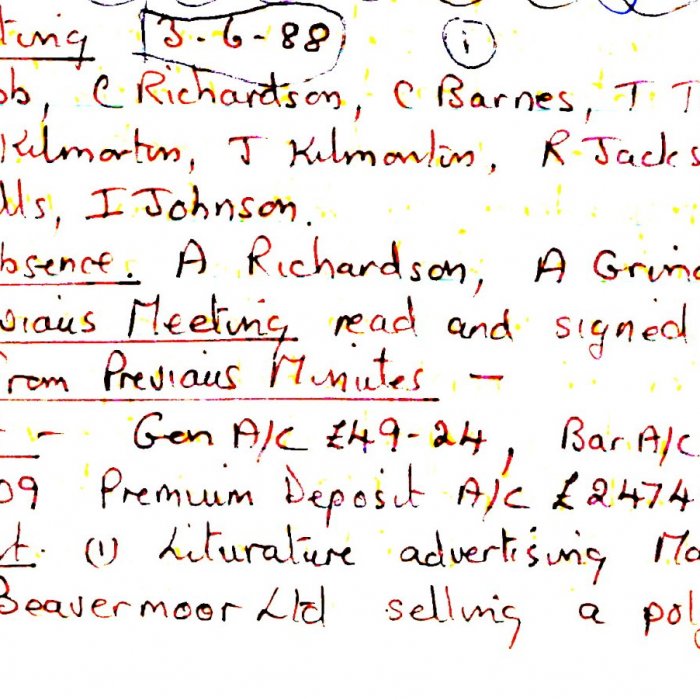 ting 3-6-88 i
ob, C Richardson, C Barnes, T T
Kilmartin, J Kilmartin, R Jacks
lls, I Johnson.
bsence. A Richardson, A Grind
vious Meeting read and signed
From Previous Minutes -
- Gen A/C £49-24, Bar A/C
09 Premium Deposit A/C £2474
t. (1) Liturature advertising Ma
Beavermoor Ltd selling a poly